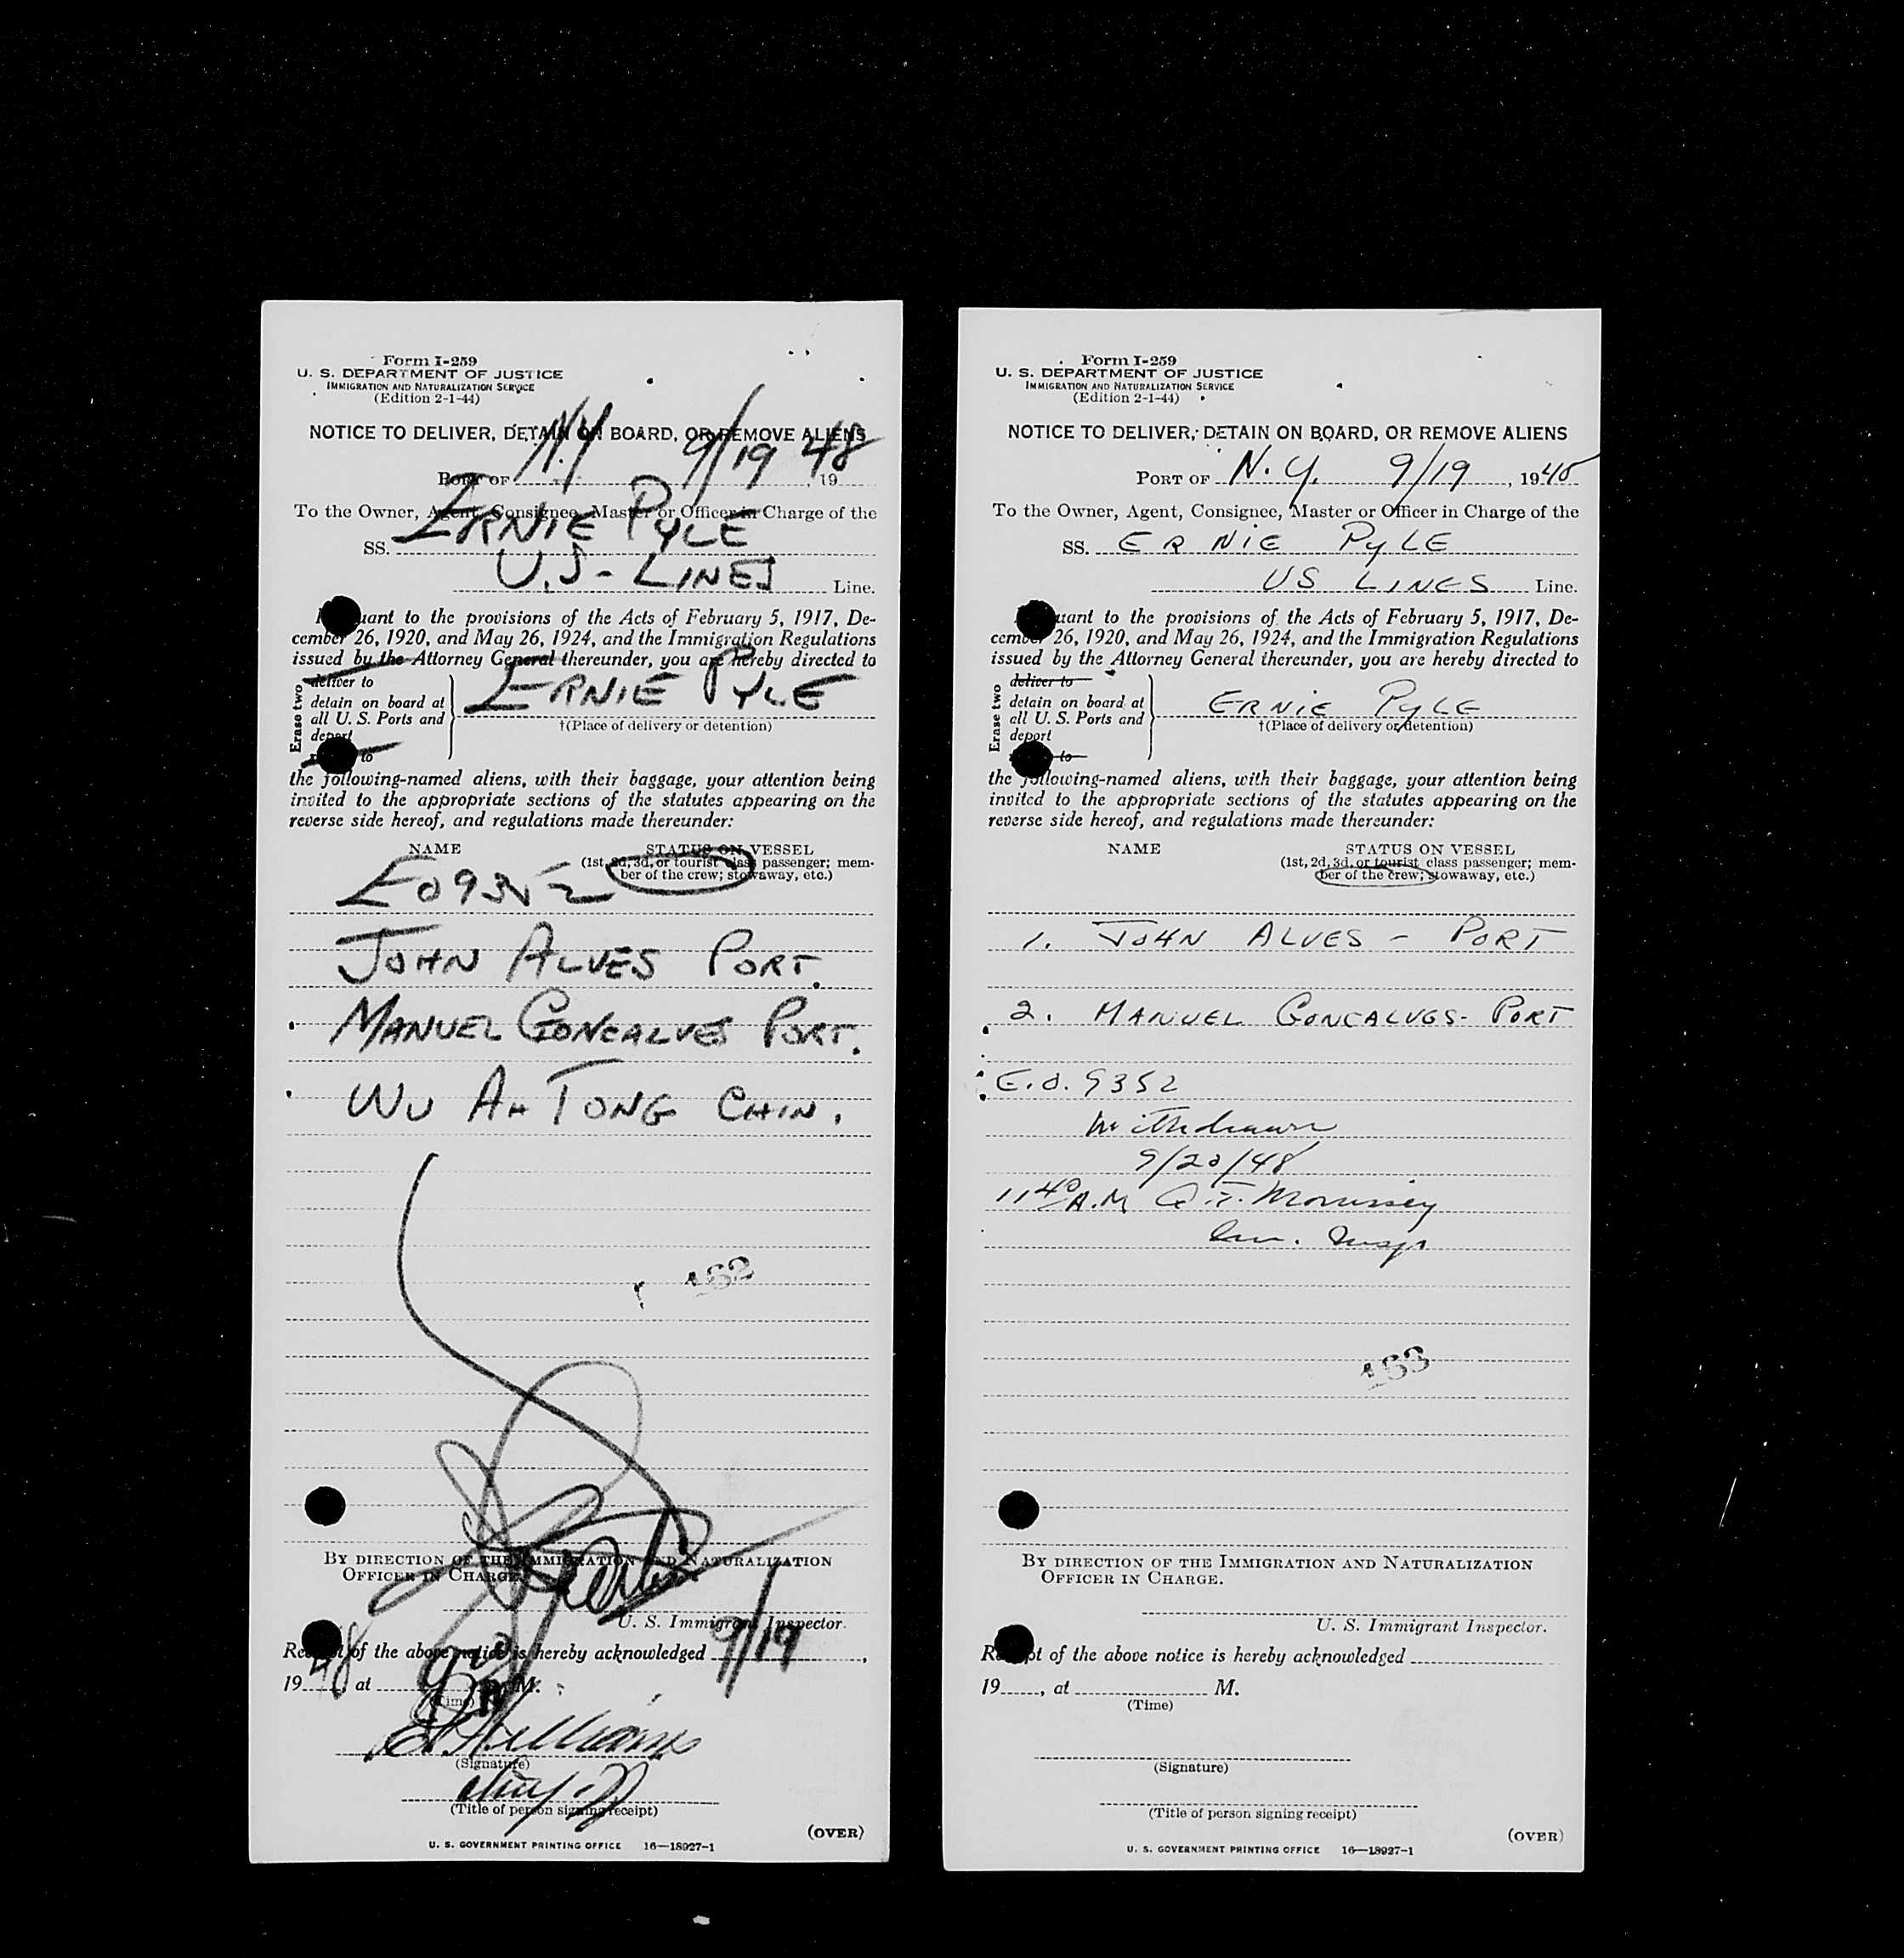 Form I-259
U. S. DEPARTMENT OF JUSTICE
IMMIGRATION AND NATURALIZATION SERVICE
(Edition 2-1-44)
NOTICE TO DELIVER, DETAIN ON BOARD, OR REMOVE ALIENS
PORT OF N.Y 9/19, 19 48
To the Owner, Agent, Consignee, Master or Officer in Charge of the
SS. ERNIE PYLE
U.S- LINES Line.
uant to the provisions of the Acts of February 5, 1917, De-
cember 26, 1920, and May 26, 1924, and the Immigration Regulations
issued by the Attorney General thereunder, you are hereby directed to
Erase two
deliver to
detain on board at
all U. S. Ports and
deport
to
ERNIE PYLE
†(Place of delivery or detention)
the following-named aliens, with their baggage, your attention being
invited to the appropriate sections of the statutes appearing on the
reverse side hereof, and regulations made thereunder:
NAME STATUS ON VESSEL
(1st, 2d, 3d, or tourist class passenger; mem-
ber of the crew; stowaway, etc.)
EO9352
JOHN ALVES PORT.
MANUEL GONCALVES PORT.
WU AH TONG CHIN.
162
BY DIRECTION OF THE IMMIGRATION AND NATURALIZATION
OFFICER IN CHARGE.
U. S. Immigrant Inspector.
Receipt of the above notice is hereby acknowledged 9/19,
19 48, at M.
(Time)
Williams
(Signature)
(Title of person signing receipt)
(OVER)
U. S. GOVERNMENT PRINTING OFFICE 16—18927-1
Form I-259
U. S. DEPARTMENT OF JUSTICE
IMMIGRATION AND NATURALIZATION SERVICE
(Edition 2-1-44)
NOTICE TO DELIVER, DETAIN ON BOARD, OR REMOVE ALIENS
PORT OF N.Y. 9/19, 1948
To the Owner, Agent, Consignee, Master or Officer in Charge of the
SS. ERNIE PYLE
US LINES Line.
uant to the provisions of the Acts of February 5, 1917, De-
cember 26, 1920, and May 26, 1924, and the Immigration Regulations
issued by the Attorney General thereunder, you are hereby directed to
Erase two
deliver to
detain on board at
all U. S. Ports and
deport
to
ERNIE PYLE
†(Place of delivery or detention)
the following-named aliens, with their baggage, your attention being
invited to the appropriate sections of the statutes appearing on the
reverse side hereof, and regulations made thereunder:
NAME STATUS ON VESSEL
(1st, 2d, 3d, or tourist class passenger; mem-
ber of the crew; stowaway, etc.)
1. JOHN ALVES - PORT
2. MANUEL GONCALVES- PORT
E.O. 9352
Withdrawn
9/20/48
11 40 A.M Morrissey
Imm. Inspr
163
BY DIRECTION OF THE IMMIGRATION AND NATURALIZATION
OFFICER IN CHARGE.
U. S. Immigrant Inspector.
Receipt of the above notice is hereby acknowledged
19, at M.
(Time)
(Signature)
(Title of person signing receipt)
(OVER)
U. S. GOVERNMENT PRINTING OFFICE 16—18927-1